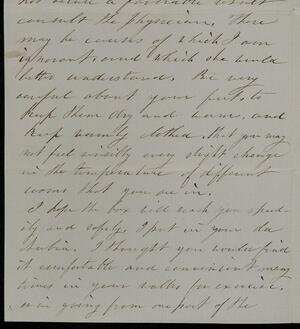 not receive a favorable result
consult the physician. There
may be causes of which I am
ignorant, and which she would
better understand. Be very
careful about your feet, to
keep them dry and warm, and
keep warmly clothed, that you may
not feel sensibly every slight change
in the temperature of different
rooms that you are in.
I hope the box will reach you speed-
ily and safely. I put in your
I thought you would find
it comfortable and convenient many
times in your walks for exercise,
or in going from one part of the